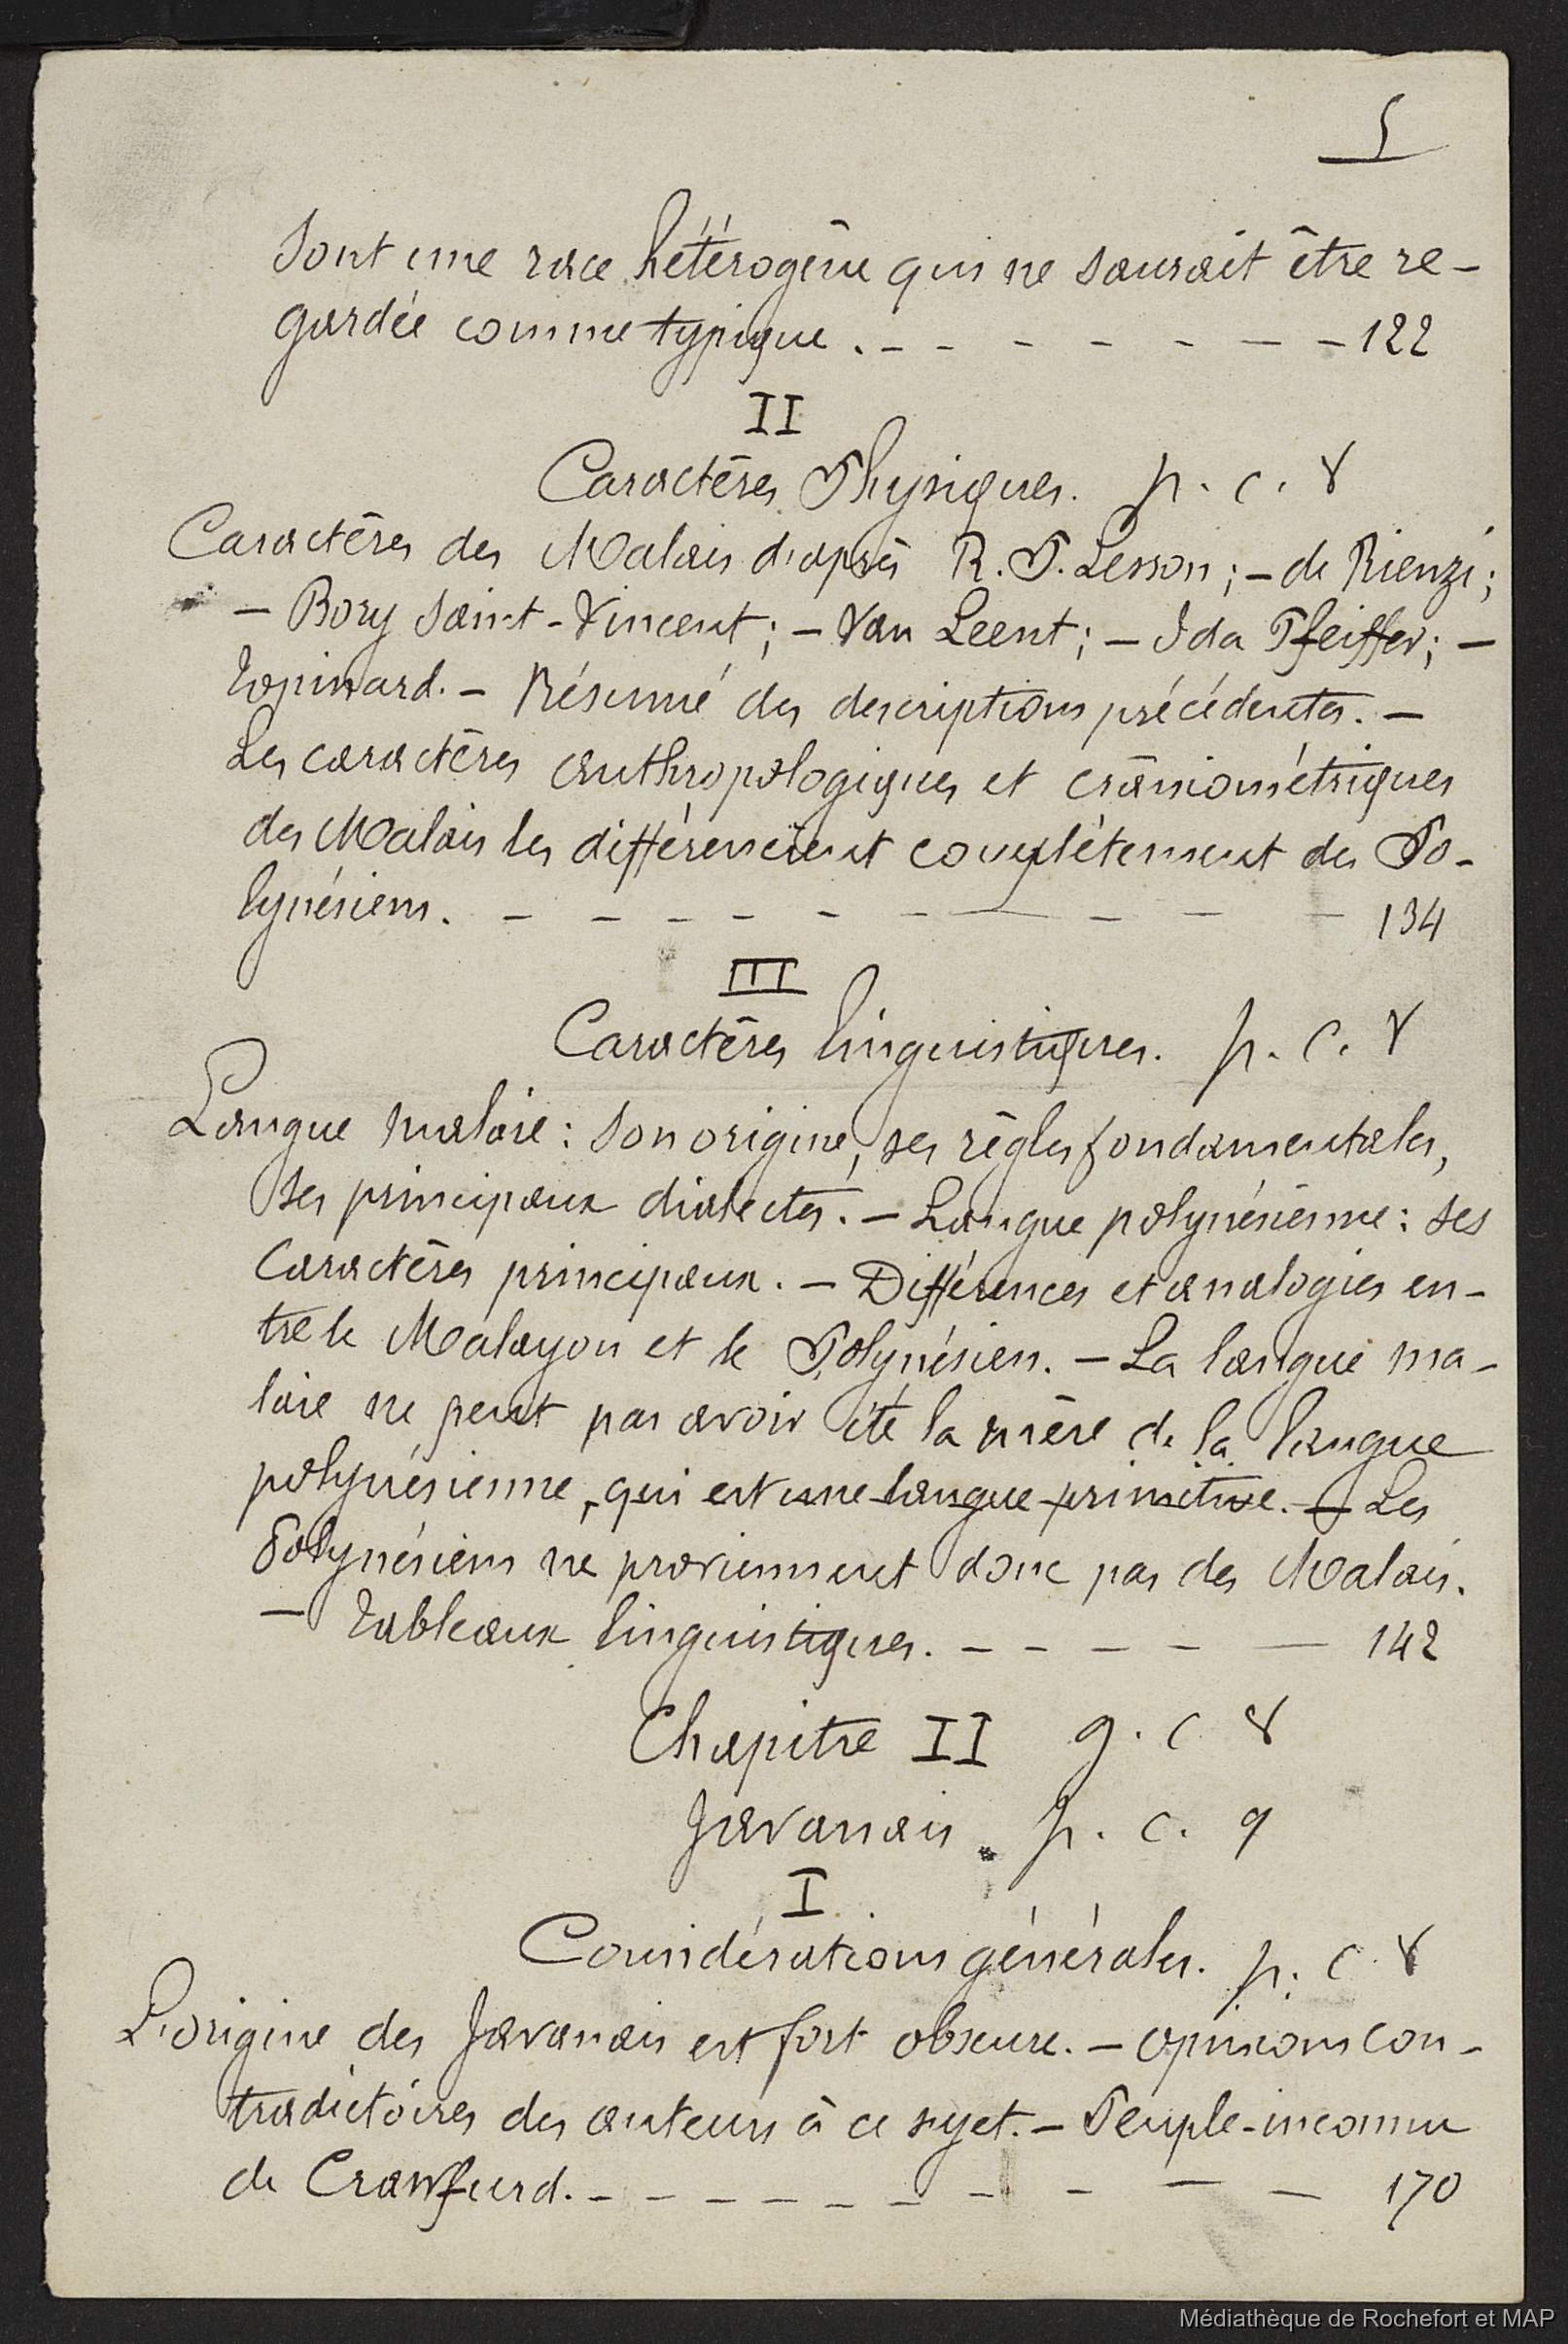 5
sont une race hétérogène qui ne saurait être re-
gardée comme typique. - - - - - - - 122
II
Caractères Physiques. p. c. 8
Caractères des Malais d'après R. P. Lesson; - de Rienzi;
- Bory Saint-Vincent; - Van Leent; - Ida Pfeiffer; -
Topinard. - Résumé des descriptions précédentes. -
Les caractères anthropologiques et crâniométriques
des Malais les différencient complètement des Po-
lynésiens. - - - - - - - - - - 134
III
Caractères linguistiques. p. c. 8
Langue malaie: son origine, ses règles fondamentales,
ses principaux dialectes. - Langue polynésienne: ses
caractères principaux. - Différences et analogies en-
tre le Malayou et le Polynésien. - La langue ma-
laie ne peut pas avoir été la mère de la langue
polynésienne, qui est une langue primitive. - Les
Polynésiens ne proviennent donc pas des Malais.
- Tableaux linguistiques. - - - - - 142
Chapitre II g. c 8
Javanais. p. c. 9
I
Considérations générales. p. c. 8
L'origine des Javanais est fort obscure. - Opinions con-
tradictoires des auteurs à ce sujet. - Peuple-inconnu
de Crawfurd. - - - - - - - - - - 170
Médiathèque de Rochefort et MAP